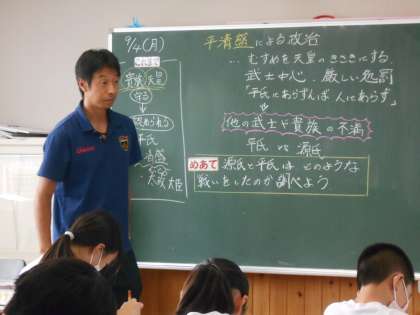 9/4(月)
これまで
貴族 天皇
守る
平氏
清盛
太政大臣
平清盛による政治
…むすめを天皇のきさきにする
武士中心、厳しい処罰
「平氏にあらずんば人にあらず」
他の武士や貴族の不満
平氏 vs 源氏
めあて 源氏と平氏はどのような
戦いをしたのか調べよう。